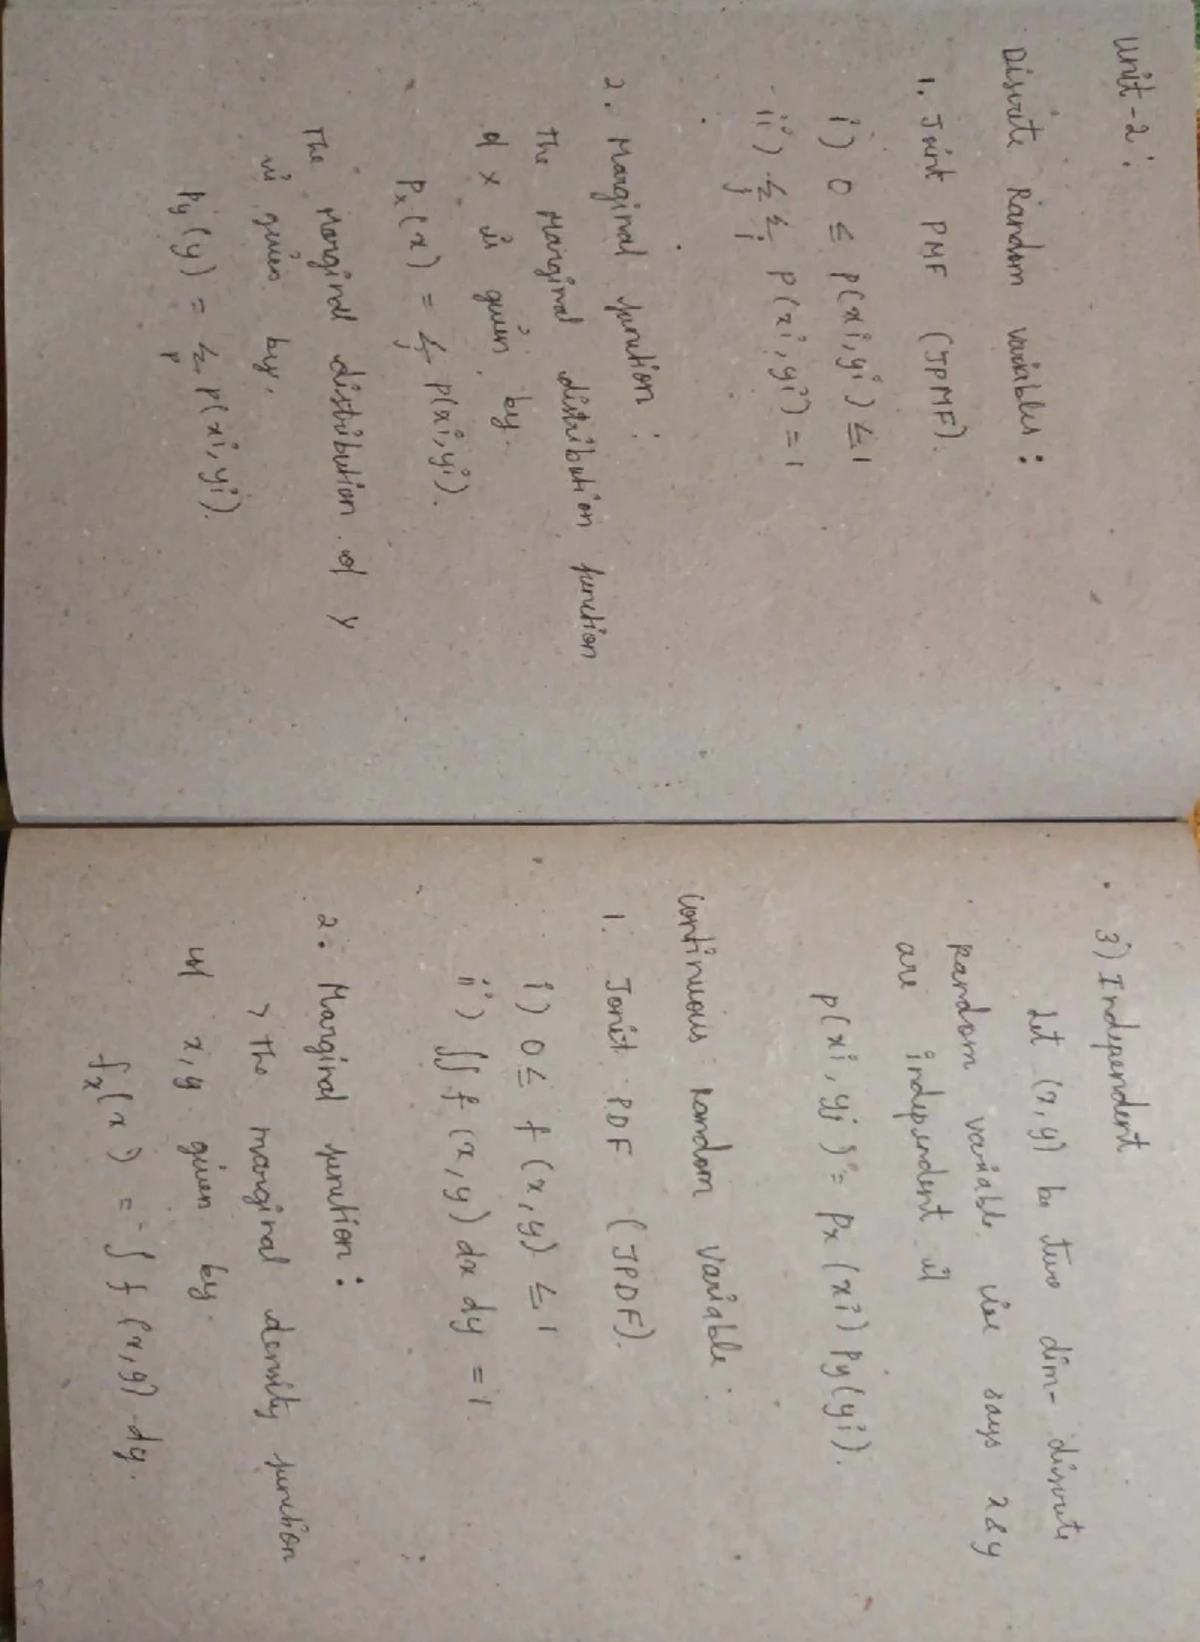 Unit-2:
Discrete Random variables:
1. Joint PMF (JPMF).
i) 0 ≤ P(xi,yi) ≤ 1
ii) Σj Σi P(xi,yi) = 1
2. Marginal function:
The Marginal distribution function
of x is given by.
Px(x) = Σj P(xi,yi).
The Marginal distribution of y
is given by.
Py(y) = Σ P(xi,yi).
3) Independent
Let (x,y) be two dim- discrete
random variable we says x & y
are independent if
P(xi,yj) = Px(xi) Py(yi).
Continuous Random Variable:
1. Jonit PDF (JPDF).
i) 0 ≤ f(x,y) ≤ 1
ii) ∬ f(x,y) dx dy = 1.
2. Marginal function:
> The marginal density function
of x,y given by.
fx(x) = ∫ f(x,y) dy.